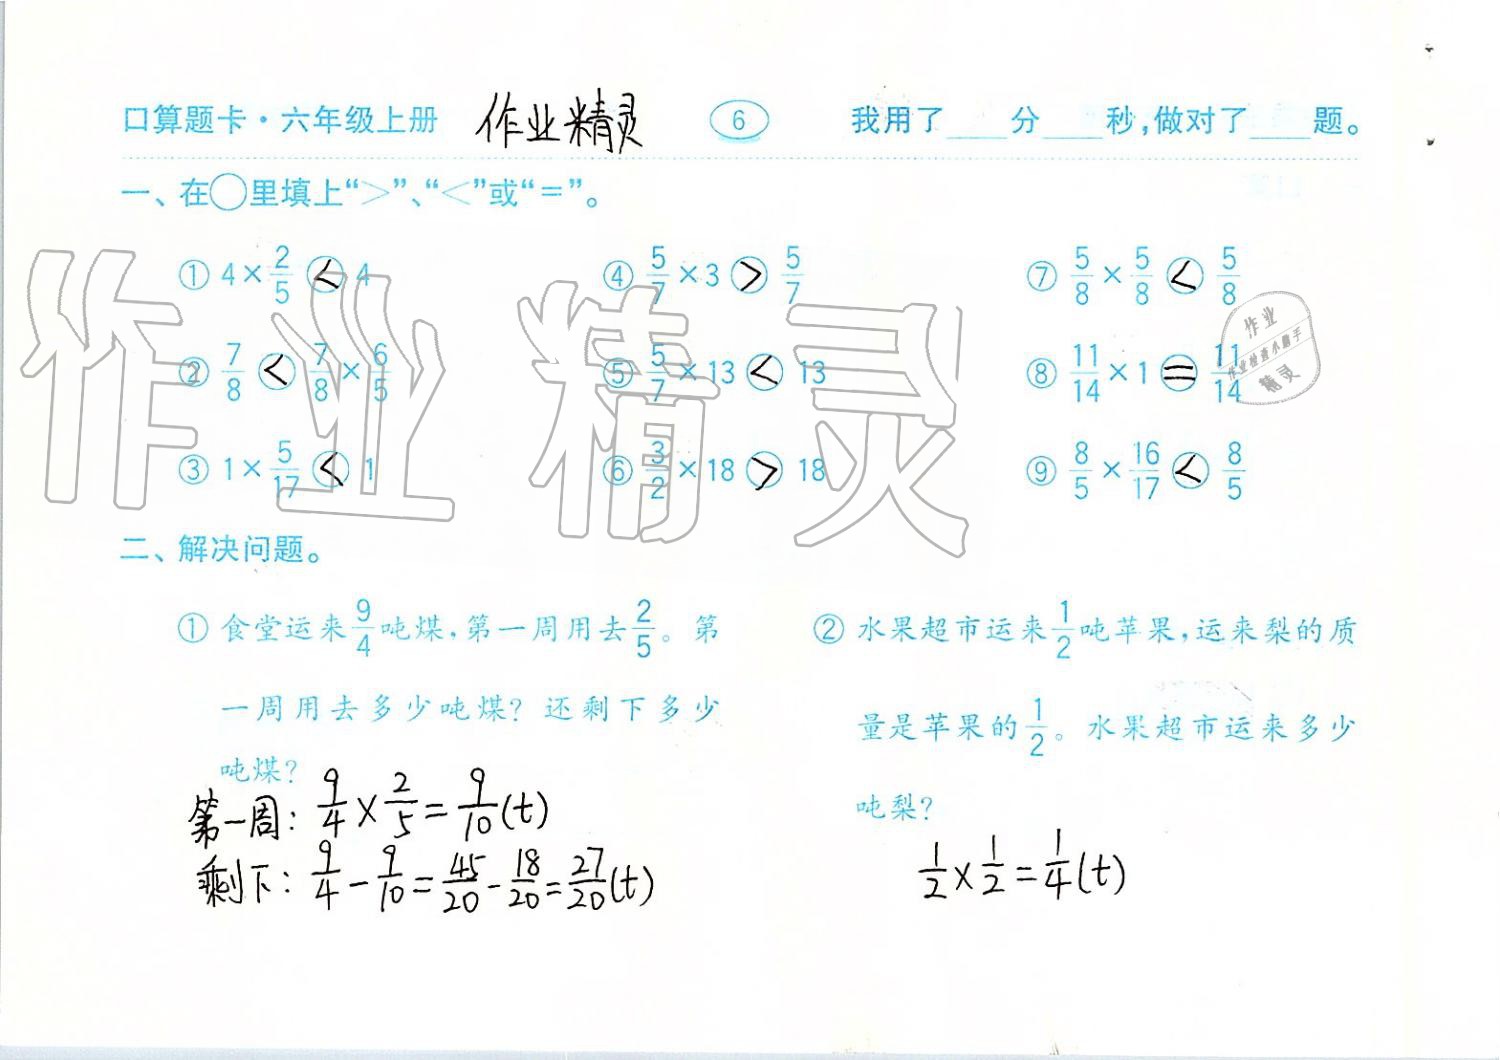 口算题卡·六年级上册 作业精灵 6 我用了____分____秒,做对了____题。
一、在○里填上“>”、“<”或“=”。
① 4×2/5 < 4 ④ 5/7×3 > 5/7 ⑦ 5/8×5/8 < 5/8
② 7/8 < 7/8×6/5 ⑤ 5/7×13 < 13 ⑧ 11/14×1 = 11/14
③ 1×5/17 < 1 ⑥ 3/2×18 > 18 ⑨ 8/5×16/17 < 8/5
作业精灵
作业
作业检查小助手
精灵
二、解决问题。
① 食堂运来9/4吨煤,第一周用去2/5。第
一周用去多少吨煤?还剩下多少
吨煤?
第一周: 9/4×2/5=9/10(t)
剩下: 9/4-9/10=45/20-18/20=27/20(t)
② 水果超市运来1/2吨苹果,运来梨的质
量是苹果的1/2。水果超市运来多少
吨梨?
1/2×1/2=1/4(t)